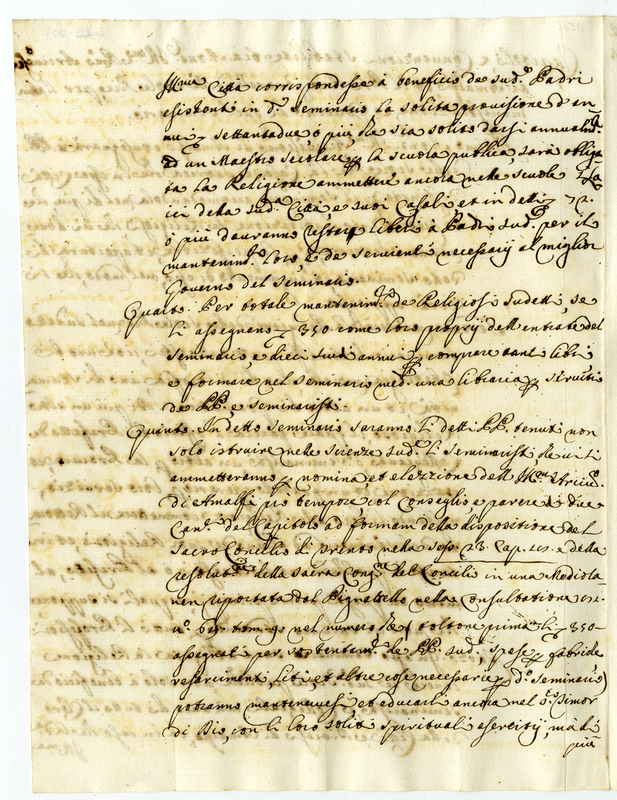 Ill.ma Città corrispondesse à beneficio de sud.i Padri
esistenti in d.o seminario la solita provisione d'an
nui settantadue, ò più, che sia solito darsi annualm.te
ad un Maestro secolare la scuola publica, sarà obliga
ta la Religione ammettere ancora nelle scuole La
ici della sud.a Città e suoi Casali et in detti 72.
ò più dovranno restare liberi à Padri sud.i per il
mantenim.to loro, e de servienti necessarij al miglior
governo del seminario.
Quarto. Per totale mantenim.to de Religiosi sudetti, se
li assegnano 350 come loro proprij dell'entrate del
seminario, e dieci scudi annui comprare tanti libri
e formare nel seminario med.o una libraria servitio
de PP. e seminaristi.
Quinto. In detto seminario saranno li detti PP. tenuti non
solo istruire nelle scienze sud.e li seminaristi, che vi si
ammetteranno nomina, et elezzione dell' Ill.mo Arciv.o
di Amalfi pro tempore, col conseglio, e parere di due
Can.ci del Capitolo ad formam della dispositione del
Sacro Concilio di Trento nella sess. 23. Cap. e della
resolut.ne della Sacra Cong.ne del Concilio in una Mediola
nen riportata dal Pignatello nella Consultatione
tom. 9. nel numero toltone prima li 350
assegnati per sostentam.to de PP. sud.i spese fabriche
resarcimenti, liti, et altre cose necessarie d.o seminario
potranno mantenervisi, et educarsi ancora nel s.to Timor
di Dio, con li loro soliti spirituali esercitij, mà di
più